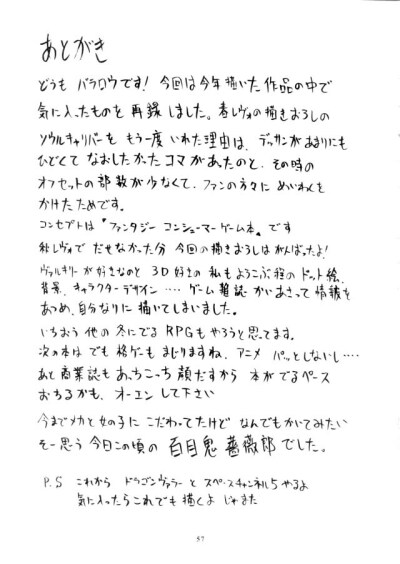 あとがき
どうも バラロウです! 今回は今年描いた作品の中で
気に入ったものを 再録しました。春レヴォの描きおろしの
ソウルキャリバーを もう一度 いれた理由は、デッサンがあまりにも
ひどくて なおしたかったコマがあったのと、その時の
オフセットの部数が少なくて、ファンの方々に めいわくを
かけたためです。
コンセプトは "ファンタジー コンシューマーゲーム本" です
秋レヴォで だせなかった分 今回の描きおろしは がんばったよ!
ヴァルキリーが好きなのと 3D好きの 私もようこぶ程のドット絵、
背景、キャラクターデザイン ‥‥ ゲーム雑誌 かいあさって 情報を
あつめ、自分なりに 描いてしまいました。
いちおう 他の 冬にでる RPGも やろうと思ってます。
次の本は でも 格ゲーも まじりますね、アニメ パッとしないし‥‥
あと 商業誌も あっちこっち 顔だすから 本が でるペース
おちるかも、オーエン して下さい
今までメカと女の子に こだわってたけど なんでもかいてみたい
そー思う 今日この頃の 百目鬼 薔薇郎 でした。
P.S これから ドラゴンヴァラーと スペースチャンネル5 やるよ
気に入ったらこれでも 描くよ じゃまた
57